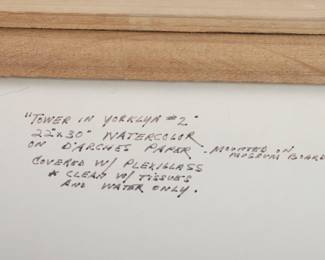 "TOWER IN YORKLYN #2"
22"x30" WATERCOLOR
ON D'ARCHES PAPER - MOUNTED ON MUSEUM BOARD
COVERED W/ PLEXIGLASS
* CLEAN W/ TISSUES
AND WATER ONLY.